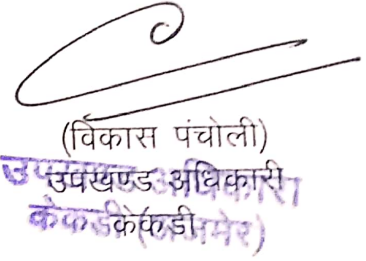 (विकास पंचोली)
उपखण्ड अधिकारी
केकडी
उपखण्ड अधिकारी
केकडी (अजमेर)